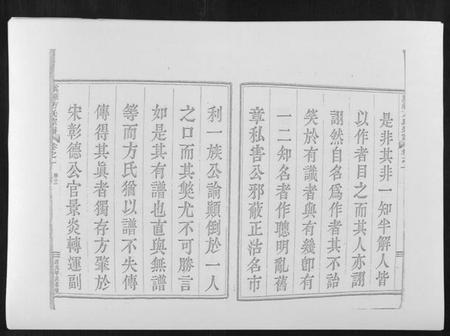 是非其非一知半解人皆
以作者目之而其人亦詡
詡然自名爲作者其不詒
笑於有識者與有幾卽有
一二知名者作聰明亂舊
章私害公邪蔽正沽名市
利一族公論顚倒於一人
之口而其獘尤不可勝言
如是其有譜也直與無譜
等而方氏猶以譜不失傳
傳得其眞者獨存方肇於
宋彰德公官景炎轉運副